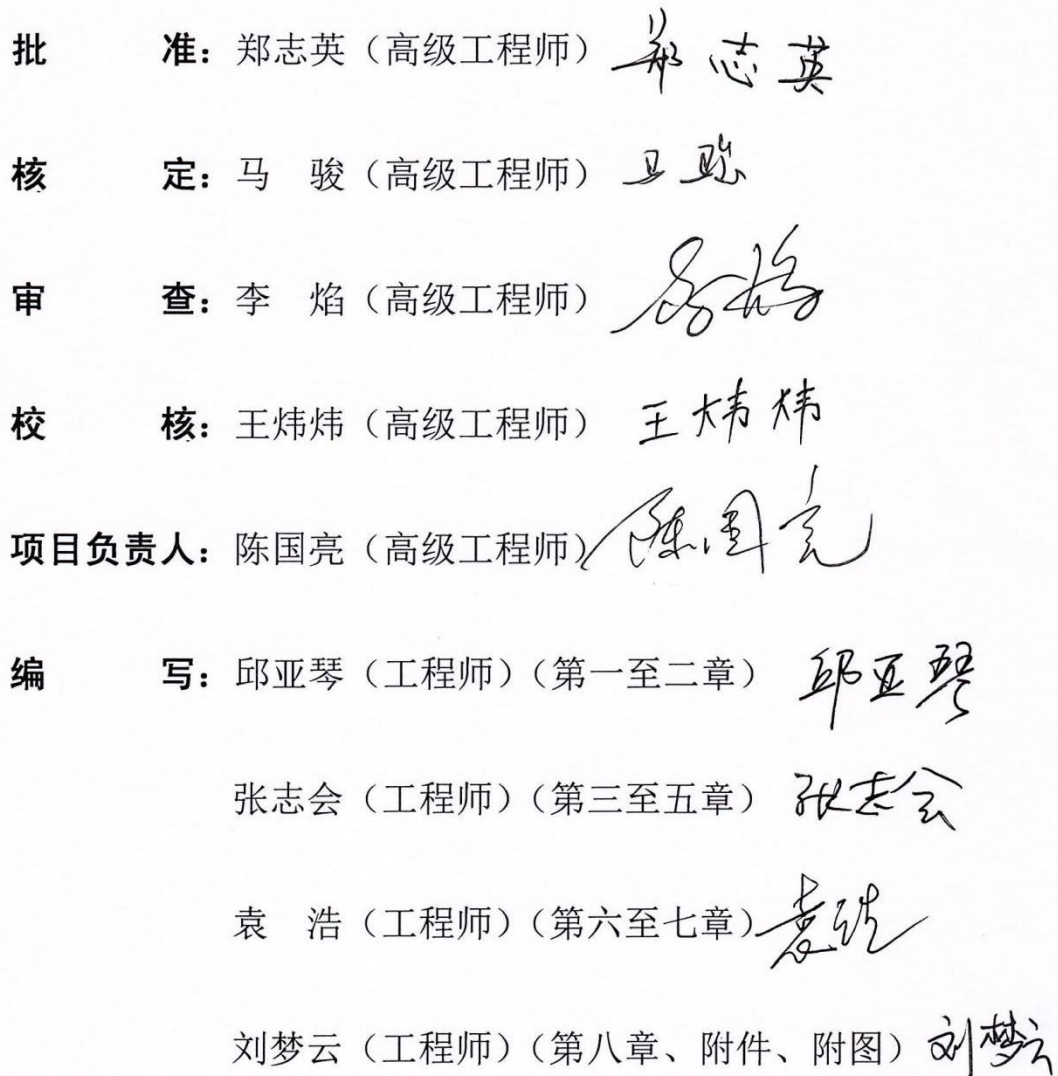 批 准：郑志英（高级工程师） 郑志英
核 定：马 骏（高级工程师） 马骏
审 查：李 焰（高级工程师） 李焰
校 核：王炜炜（高级工程师） 王炜炜
项目负责人：陈国亮（高级工程师） 陈国亮
编 写：邱亚琴（工程师）（第一至二章） 邱亚琴
张志会（工程师）（第三至五章） 张志会
袁 浩（工程师）（第六至七章） 袁浩
刘梦云（工程师）（第八章、附件、附图） 刘梦云